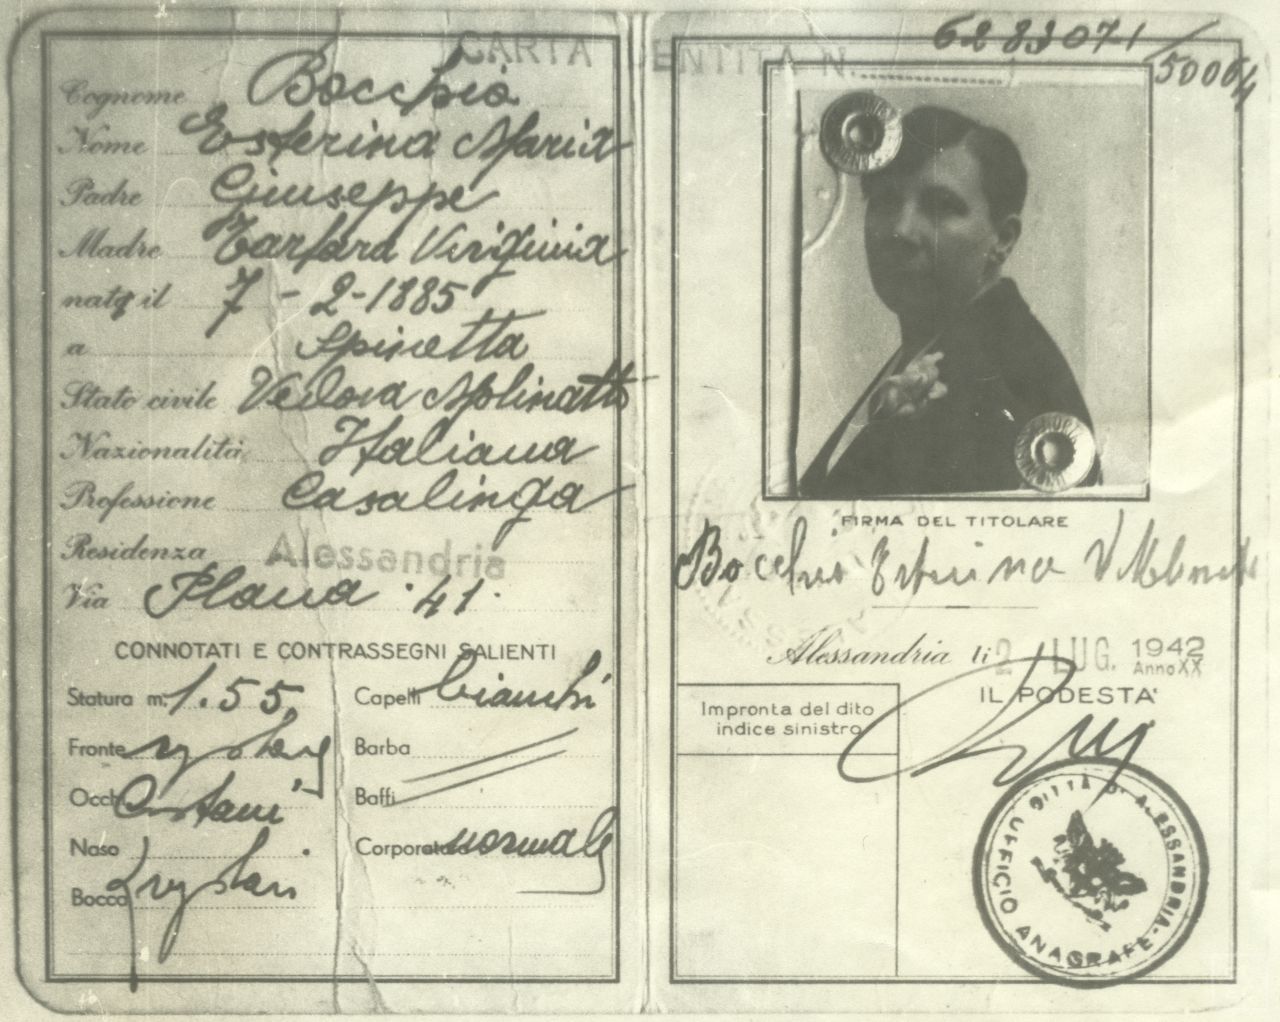 CARTA IDENTITÀ N. 6283071/50064
Cognome Bocchio
Nome Esterina Maria
Padre Giuseppe
Madre Tarfara Virginia
nata il 7-2-1885
a Spinetta
Stato civile Vedova Molinatto
Nazionalità Italiana
Professione Casalinga
Residenza Alessandria
Via Plana 41.
CONNOTATI E CONTRASSEGNI SALIENTI
Statura m. 1.55
Fronte
Occhi Castani
Naso
Bocca
Capelli bianchi
Barba
Baffi
Corporatura normale
FIRMA DEL TITOLARE
Bocchio Esterina V
Alessandria li 2 LUG. 1942
Anno XX
IL PODESTA'
Impronta del dito
indice sinistro
CITTÀ D'ALESSANDRIA - UFFICIO ANAGRAFE